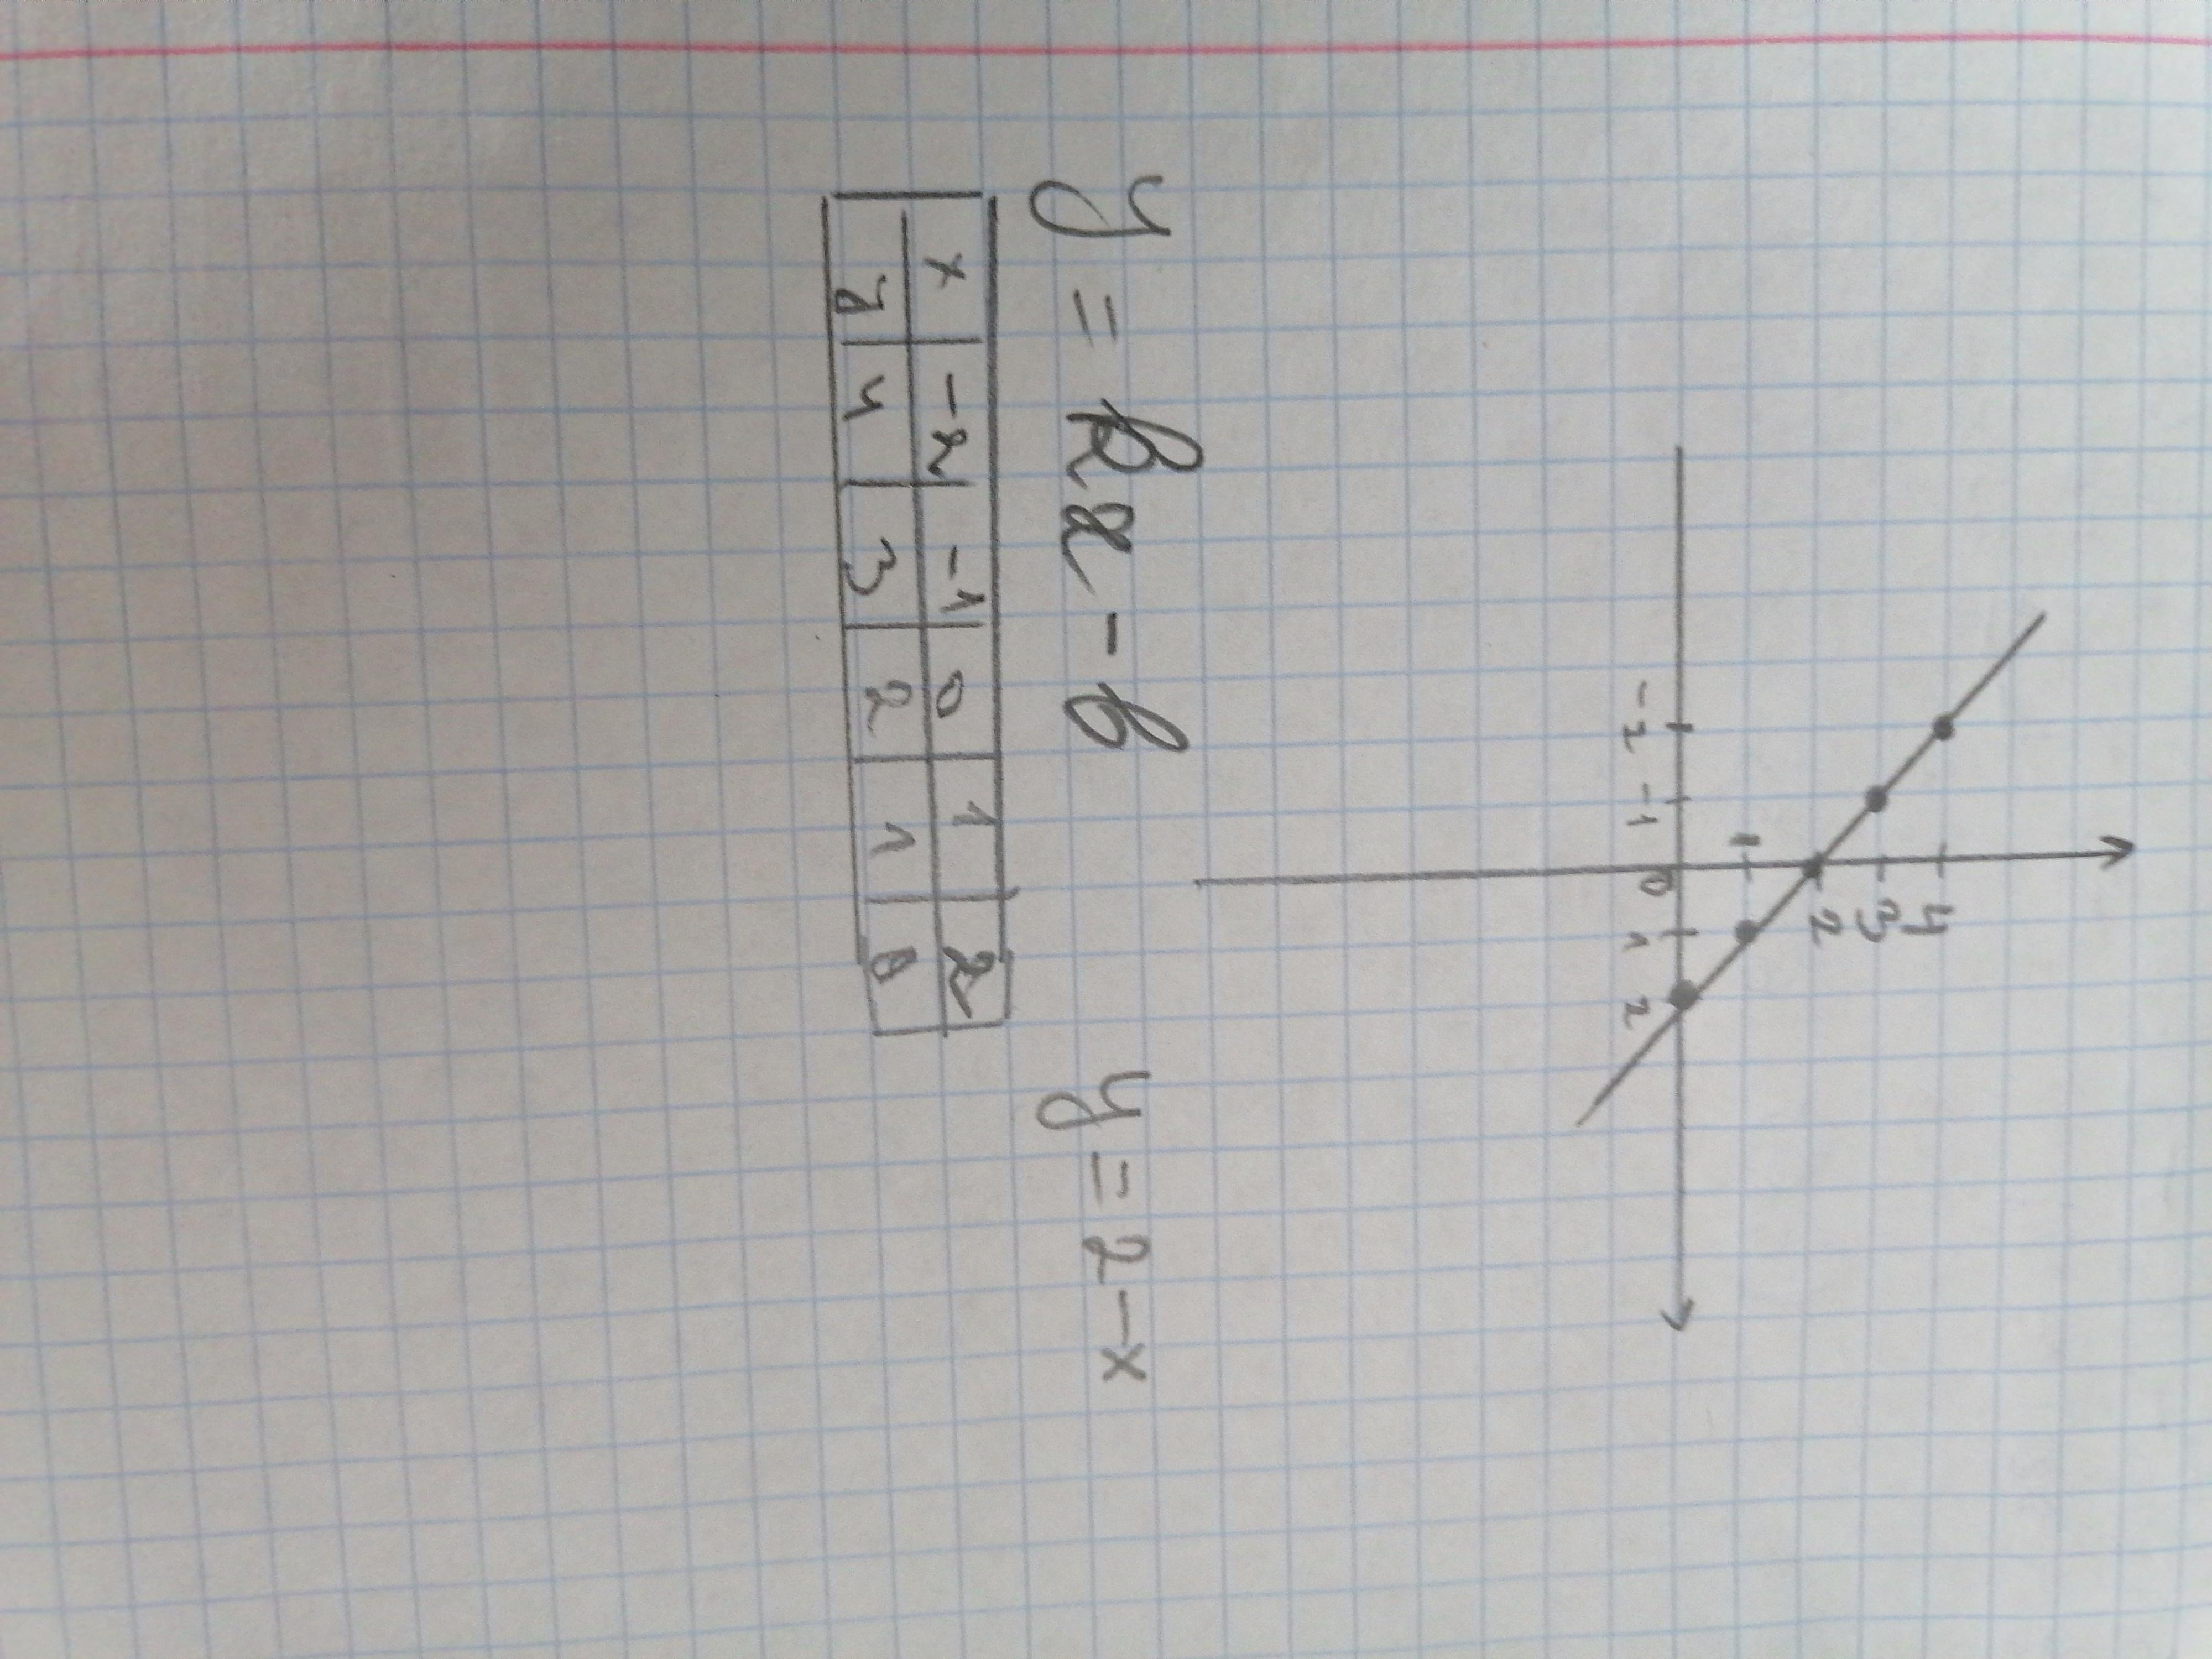 4
3
2
1
-2 -1 0 1 2
y = kx - b y = 2 - x
x -2 -1 0 1 2
y 4 3 2 1 0